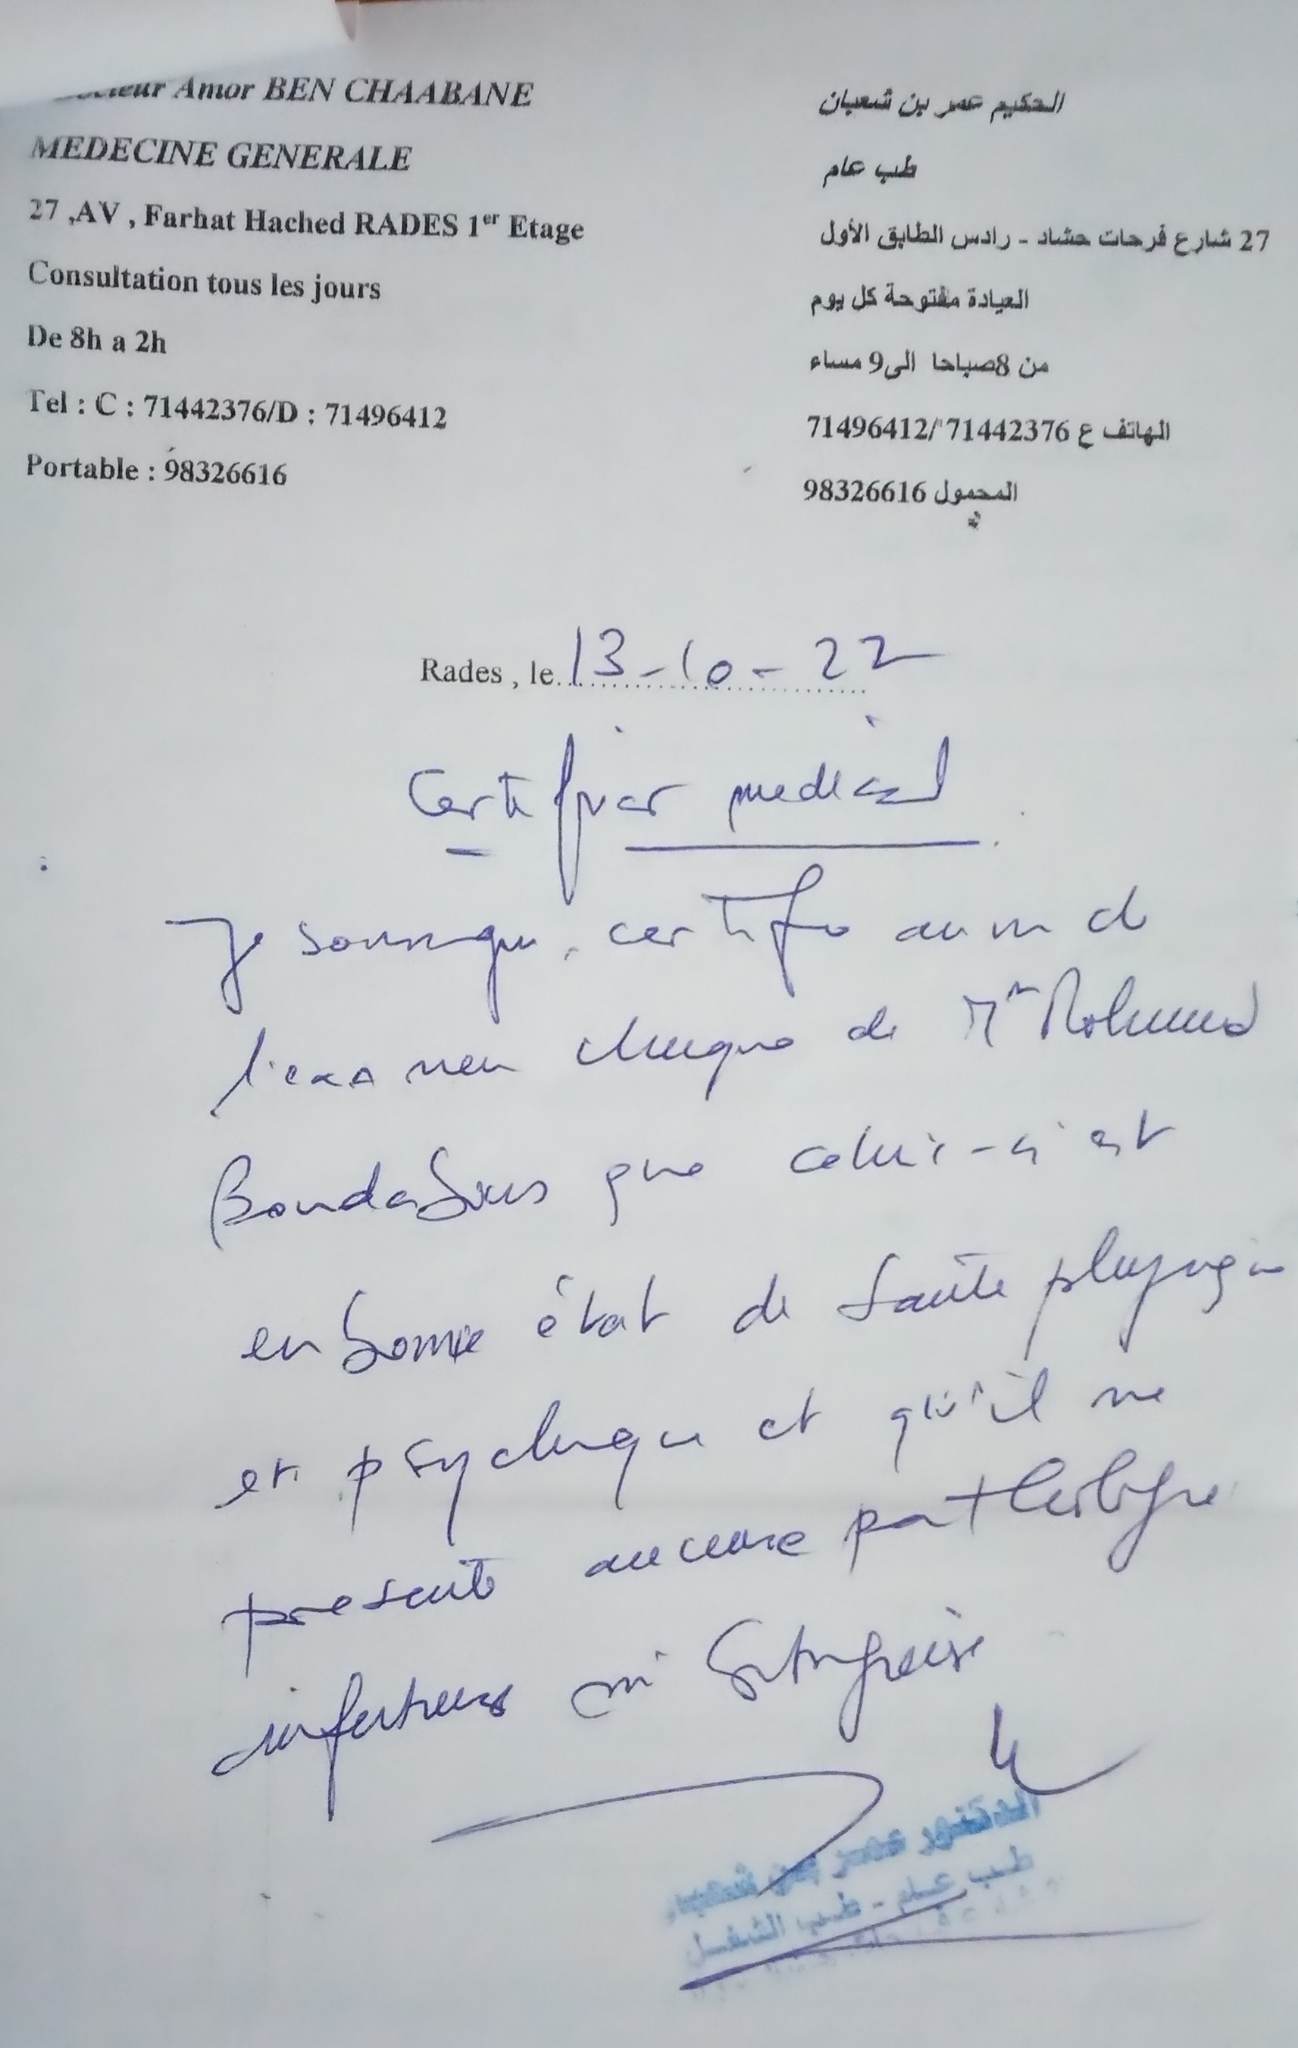 Amor BEN CHAABANE
MEDECINE GENERALE
27 ,AV , Farhat Hached RADES 1er Etage
Consultation tous les jours
De 8h a 2h
Tel : C : 71442376/D : 71496412
Portable : 98326616
الحكيم عمر بن شعبان
طب عام
27 شارع فرحات حشاد - رادس الطابق الأول
العيادة مفتوحة كل يوم
من 8صباحا الى9 مساء
الهاتف ع 71442376/71496412
المحمول 98326616
Rades , le 13-10-22
Certificat medical
Je soussigné, certifie au vu de
l'examen clinique de Mr Mohamed
que celui-ci est
en bonne état de santé physique
et psychique et qu'il ne
présente aucune pathologie
infectieuse ni
الدكتور عمر بن شعبان
طب عام - طب الشغل